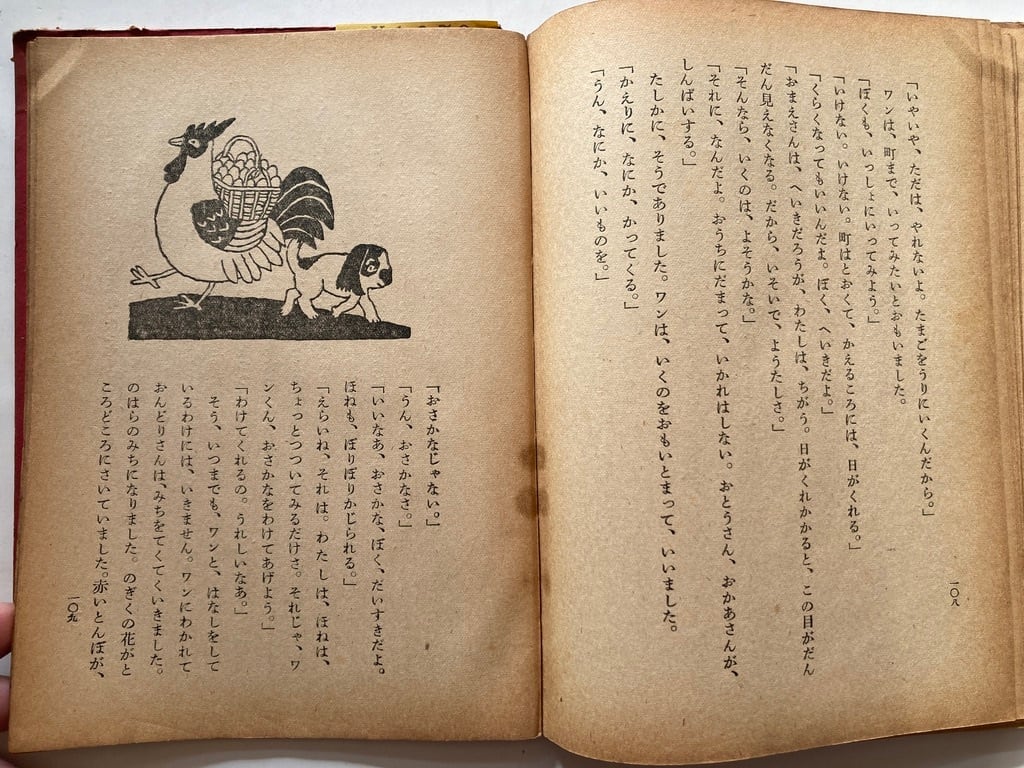 「いやいや、ただは、やれないよ。たまごをうりにいくんだから。」
ワンは、町まで、いってみたいとおもいました。
「ぼくも、いっしょにいってみよう。」
「いけない。いけない。町はとおくて、かえるころには、日がくれる。」
「くらくなってもいいんだよ。ぼく、へいきだよ。」
「おまえさんは、へいきだろうが、わたしは、ちがう。日がくれかかると、この目がだん
だん見えなくなる。だから、いそいで、ようたしさ。」
「そんなら、いくのは、よそうかな。」
「それに、なんだよ。おうちにだまって、いかれはしない。おとうさん、おかあさんが、
しんぱいする。」
たしかに、そうでありました。ワンは、いくのをおもいとまって、いいました。
「かえりに、なにか、かってくる。」
「うん、なにか、いいものを。」
一〇八
「おさかなじゃない。」
「うん、おさかなさ。」
「いいなあ、おさかな、ぼく、だいすきだよ。
ほねも、ぼりぼりかじられる。」
「えらいね、それは。わたしは、ほねは、
ちょっとつついてみるだけさ。それじゃ、ワ
ンくん、おさかなをわけてあげよう。」
「わけてくれるの。うれしいなあ。」
そう、いつまでも、ワンと、はなしをして
いるわけには、いきません。ワンにわかれて
おんどりさんは、みちをてくてくいきました。
のはらのみちになりました。のぎくの花がと
ころどころにさいていました。赤いとんぼが、
一〇九